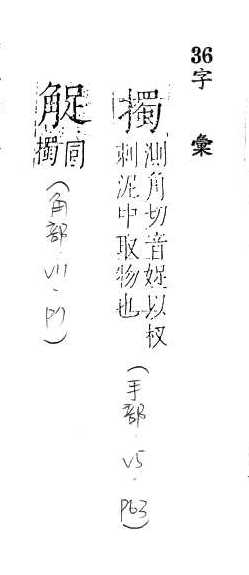 36字彙
擉
測角切音娖以杈
刺泥中取物也
(手部.V5.P63)
同
擉
(角部.V11.P7)